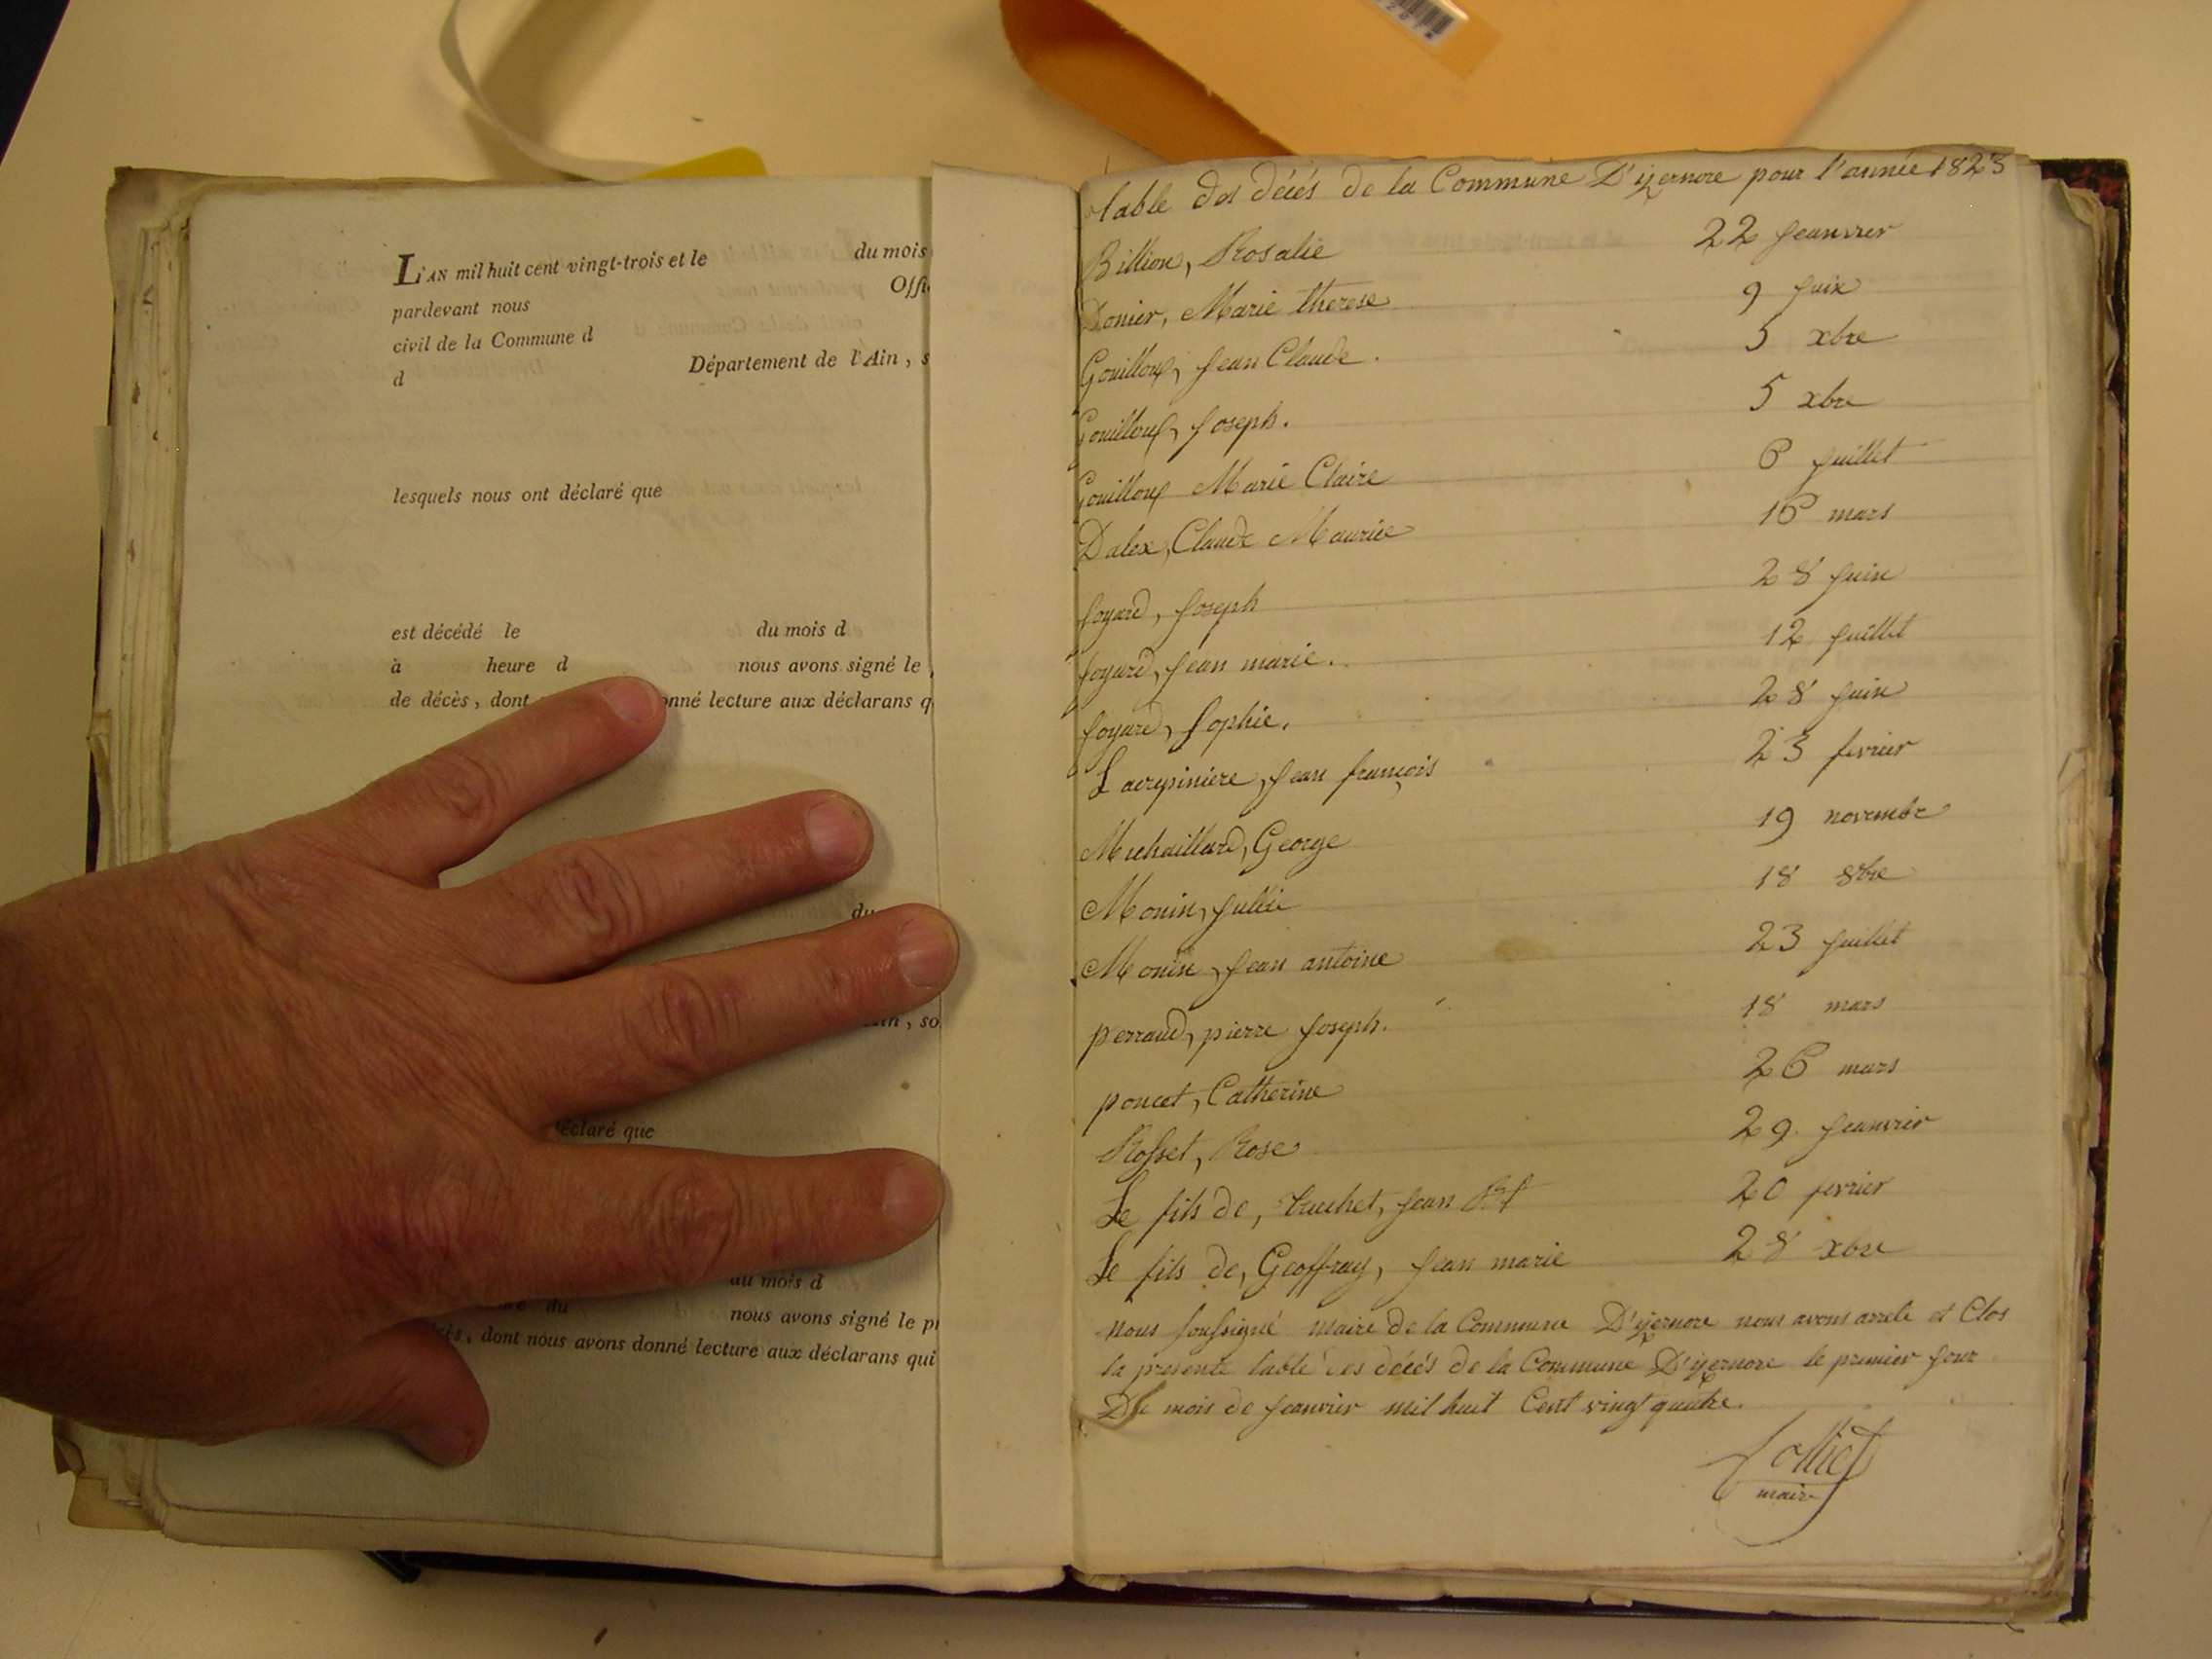 L'AN mil huit cent vingt-trois et le du mois
pardevant nous Offi
civil de la Commune d
d Département de l'Ain, s
lesquels nous ont déclaré que
est décédé le du mois d
à heure d nous avons signé le
de décès, dont onné lecture aux déclarans q
du
in, so
éclaré que
du mois d
du nous avons signé le pr
cès, dont nous avons donné lecture aux déclarans qui
table des décés de la Commune D'izernore pour l'année 1823
Billion, Rosalie 22 Jeanvier
Donier, Marie therese 9 Juin
Gouilloux, Jean Claude. 5 xbre
Gouilloux, Joseph. 5 xbre
Gouilloux Marie Claire 6 Juillet
Dalex, Claude Maurice 16 mars
foyard, Joseph 28 Juin
foyard, Jean marie. 12 Juillet
foyard, Sophie. 28 Juin
Lacrepiniere, Jean françois 23 fevrier
Michaillard, George 19 novembre
Monin, Jullie 18 8bre
Monin, Jean antoine 23 Juillet
perraud, pierre Joseph. 18 mars
poncet, Catherine 26 mars
Rosset, Rose 29. Jeanvier
Le fils de, Jean Bt 20 fevrier
Le fils de, Geoffray, Jean marie 28 xbre
nous soussigné maire de la Commune D'izernore nous avons arrete et Clos
la presente table des décés de la Commune D'izernore le premier Jour
De mois de Jeanvier mil huit Cent vingt quatre.
maire